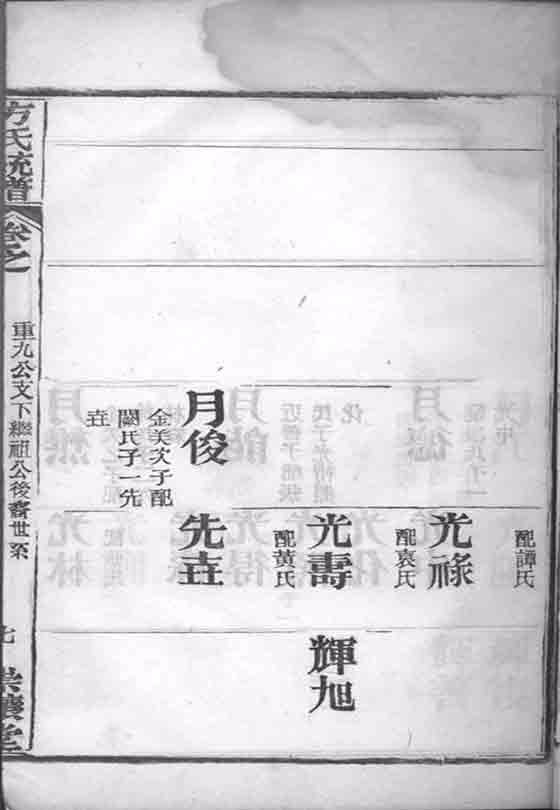 配譚氏
光祿
配袁氏
光壽
配黃氏
輝旭
月俊
金美次子配
闞氏子一先
壵
先壵
方氏統譜
卷之
重九公支下繼祖公後裔世系
七